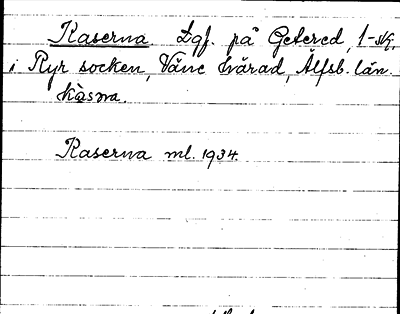 Kaserna Lgf. på Getered, 1-stg,
i Ryr socken, Väne härad, Älfsb. län.
kàsṇa.
Kaserna ml. 1934.